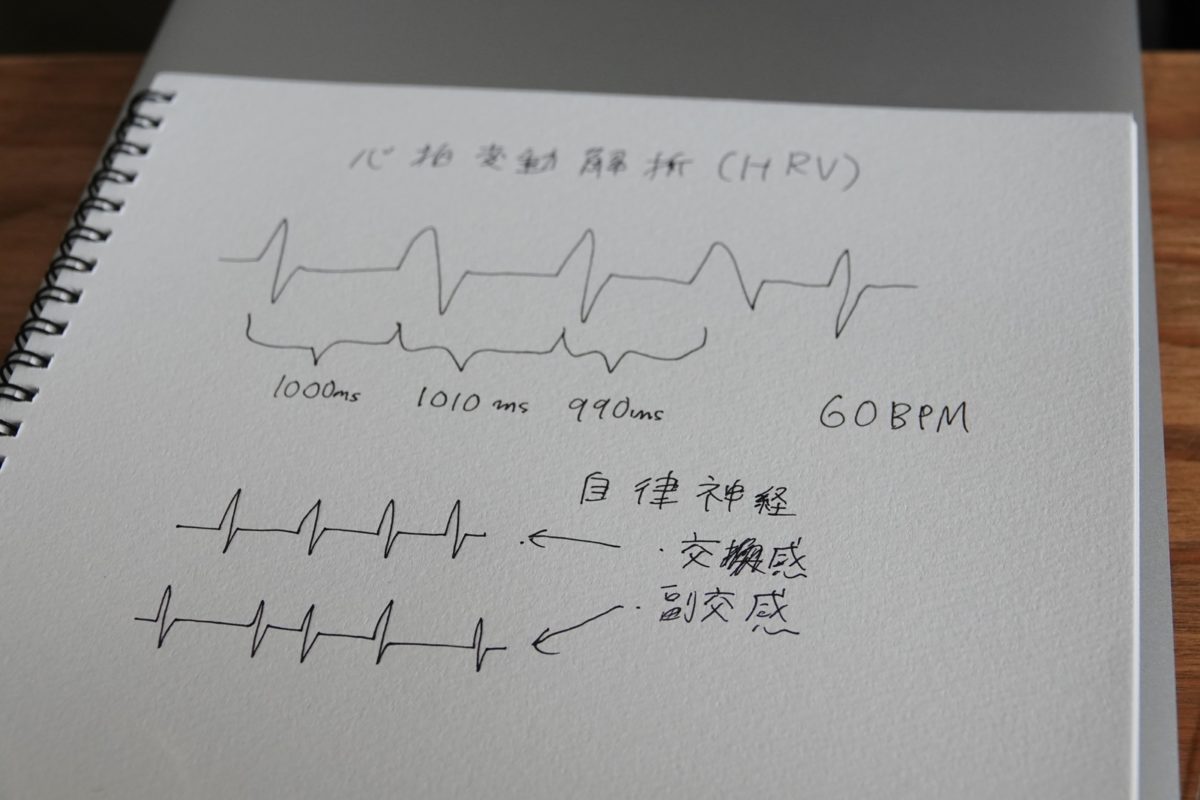 心拍変動解析(HRV)
1000ms 1010ms 990ms 60BPM
自律神経
・交感
・副交感